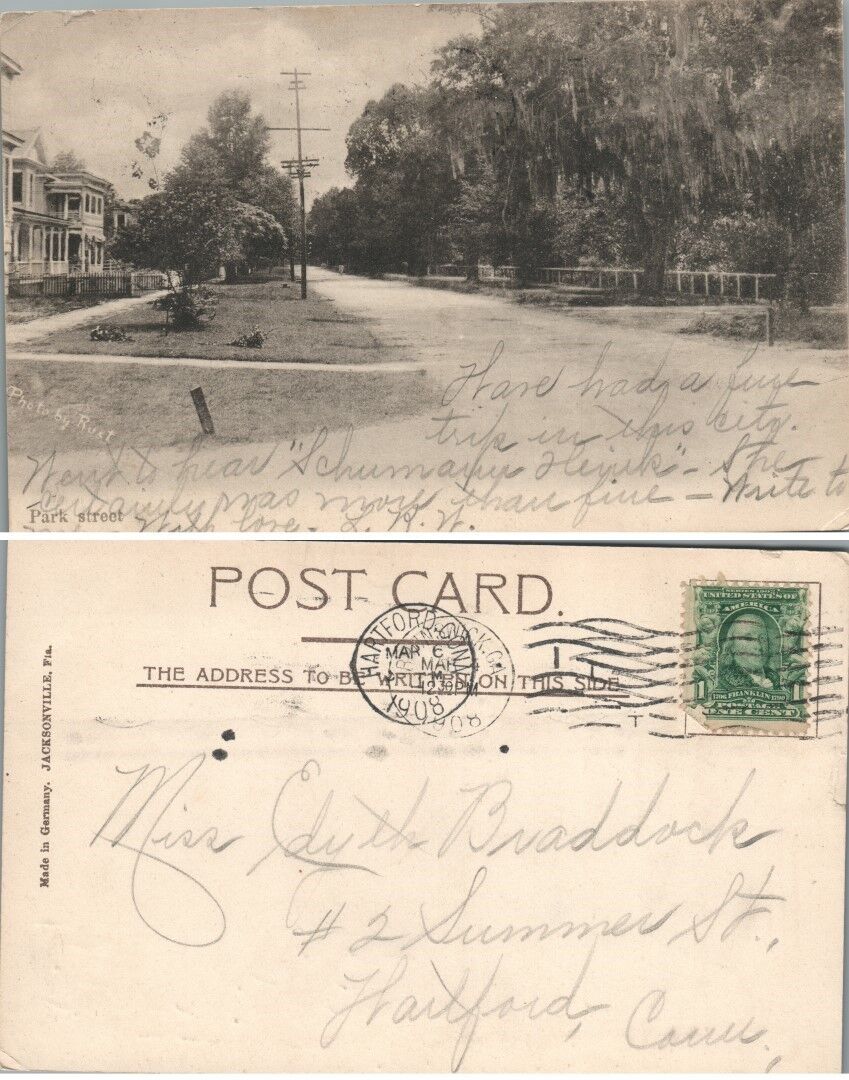 Photo by Rust
Have had a fine
trip in this city.
Went to hear "Schumann Heink" - She
certainly was more than fine - Write to
With love - L. R. W.
Park street
POST CARD.
THE ADDRESS TO BE WRITTEN ON THIS SIDE
HARTFORD, CONN.
MAR 6
1908
MAR
1230 PM
1908
SERIES 1902
UNITED STATES OF
AMERICA
1 FRANKLIN 1
POSTAGE
ONE CENT
Made in Germany. JACKSONVILLE, Fla.
Miss Edith Braddock
#2 Summer St.,
Hartford,
Conn.